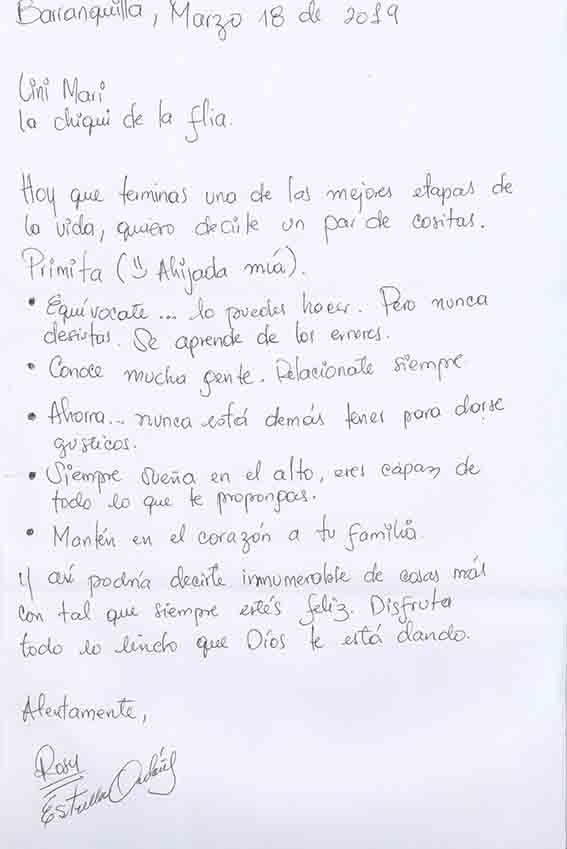 Barranquilla, Marzo 18 de 2019
Lini Mari
la chiqui de la flia.
Hoy que terminas una de las mejores etapas de
la vida, quiero decirte un par de cositas.
Primita (Ahijada mía).
• Equívocate... lo puedes hacer. Pero nunca
desistas. Se aprende de los errores.
• Conoce mucha gente. Relacionate siempre
• Ahorra... nunca está demás tener para darse
gusticos.
• Siempre sueña en el alto, eres capaz de
todo lo que te propongas.
• Mantén en el corazón a tu familia.
Y así podría decirte innumerable de cosas más
con tal que siempre estés feliz. Disfruta
todo lo lindo que Dios te está dando.
Atentamente,
Rosy
Estrella